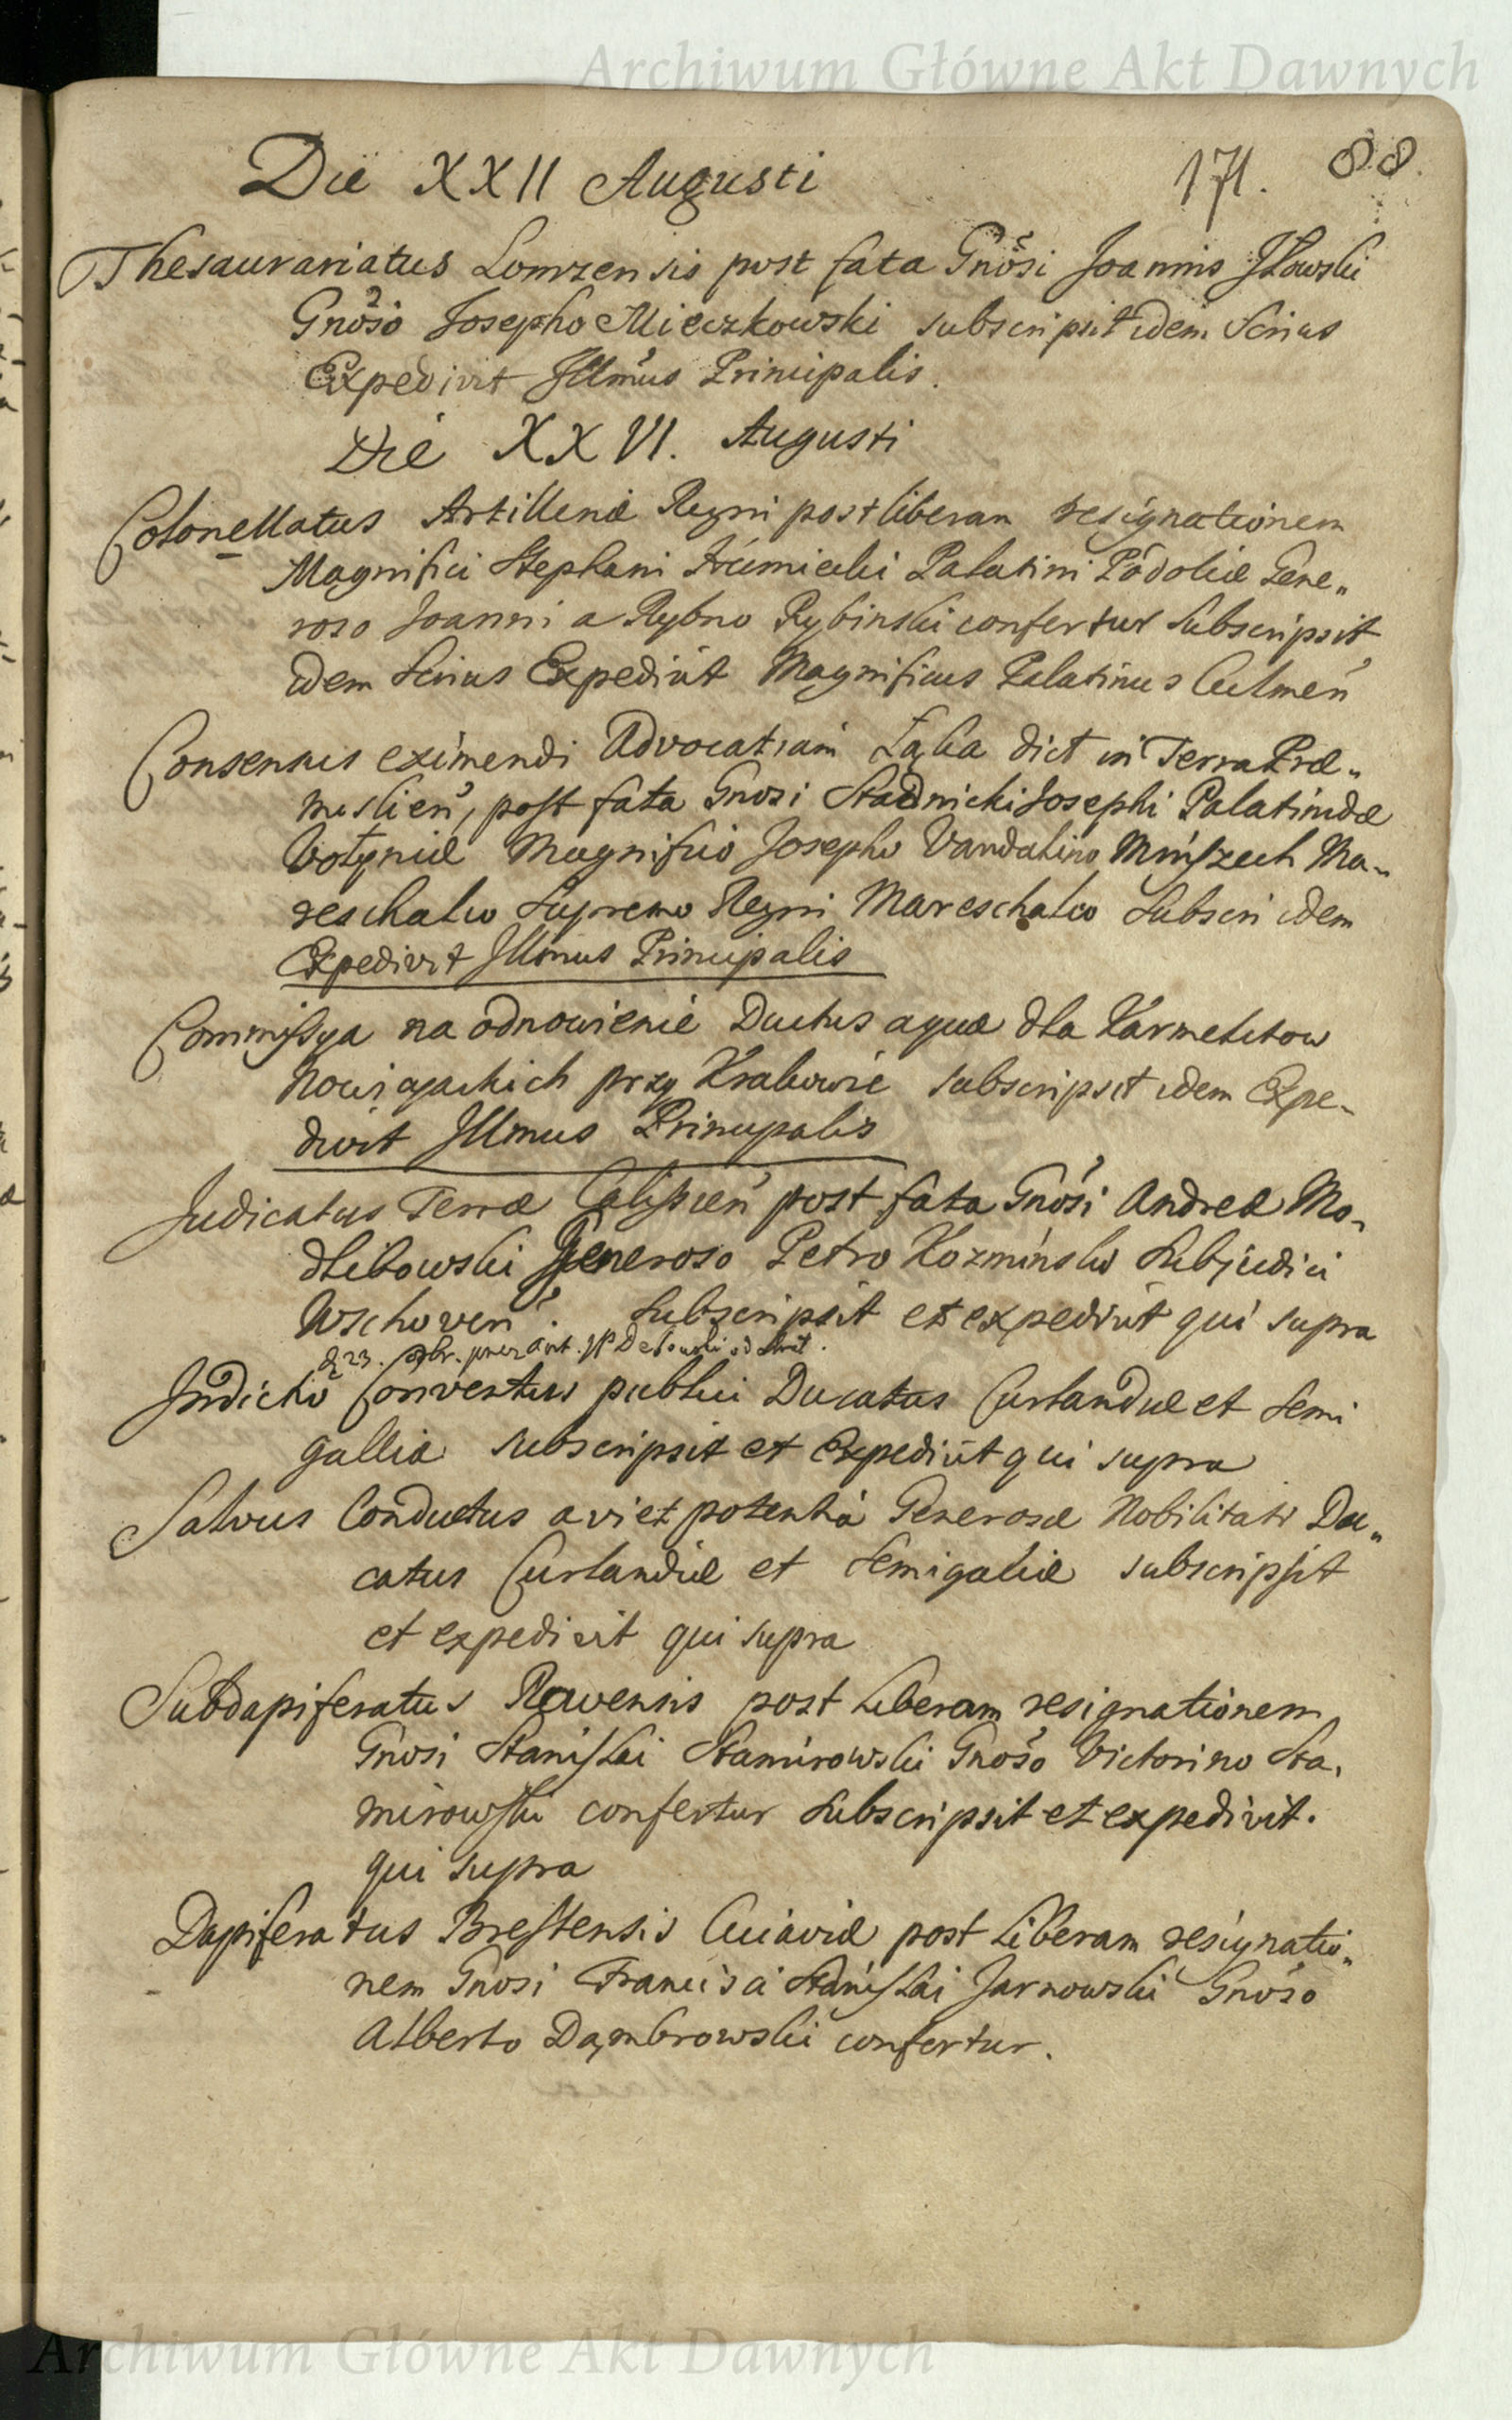 Archiwum Główne Akt Dawnych
Die XXII Augusti 171. 88.
Thesaurariatus Lomzensis post fata Gnosi Joannis Iłowski
Gnoso Josepho Mieczkowski subscripsit idem Serius
Expedivit Illmus Principalis.
Die XXVI. Augusti
Colonellatus Artilleriæ Regni post liberam resignationem
Magnifici Stephani Humiecki Palatini Podoliæ Gene„
roso Joanni a Rybno Rybinski confertur Subscripsit
idem Serius Expedivit Magnificus Palatinus Culmen
Consensus eximendi Advocatiam Łąka dict in Terra Præ„
mislien, post fata Gnosi Stadnicki Josephi Palatinidæ
Volyniæ Magnifico Josepho Vandalino Mniszech Ma„
reschalco Supremo Regni Mareschalco Subscri idem
Expedivit Illmus Principalis
Commissya na odnowienie Ductus aquæ dla Karmelitow
przy Krakowie subscripsit idem Expe„
divit Illmus Principalis
Judicatus Terræ Calissien post fata Gnosi Andreæ Mo„
dlibowski Generoso Petro Kozminski Subjudici
Wschoven. Subscripsit et expedivit qui supra
d 23. 8br. przez
Indictio Conventus publici Ducatus Curlandiæ et Semi
galliæ subscripsit et Expedivit qui supra
Salvus Conductus a vi et potentia Generosæ Nobilitati Du„
catus Curlandiæ et Semigaliæ subscripsit
et expedivit qui supra
Subdapiferatus Ravensis post Liberam resignationem
Gnosi Stanislai Stamirowski Gnoso Victorino Sta„
mirowski confertur Subscripsit et expedivit.
qui supra
Dapiferatus Brestensis Cuiaviæ post Liberam resignatio„
nem Gnosi Francisci Stanislai Jarnowski Gnoso
Alberto Dąmbrowski confertur.
Archiwum Główne Akt Dawnych